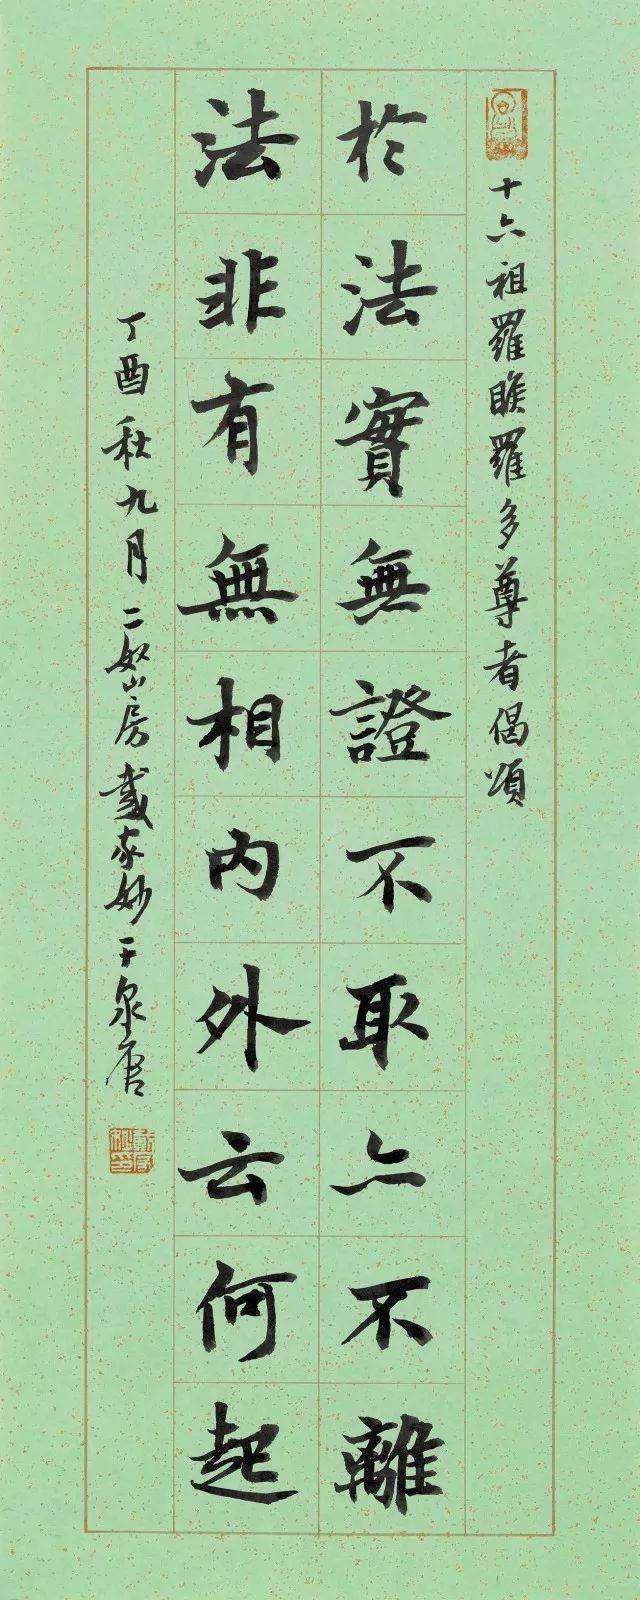 十六祖羅睺羅多尊者偈頌
於法實無證不取亦不離
法非有無相内外云何起
丁酉秋九月二奴山房戴家妙于泉唐